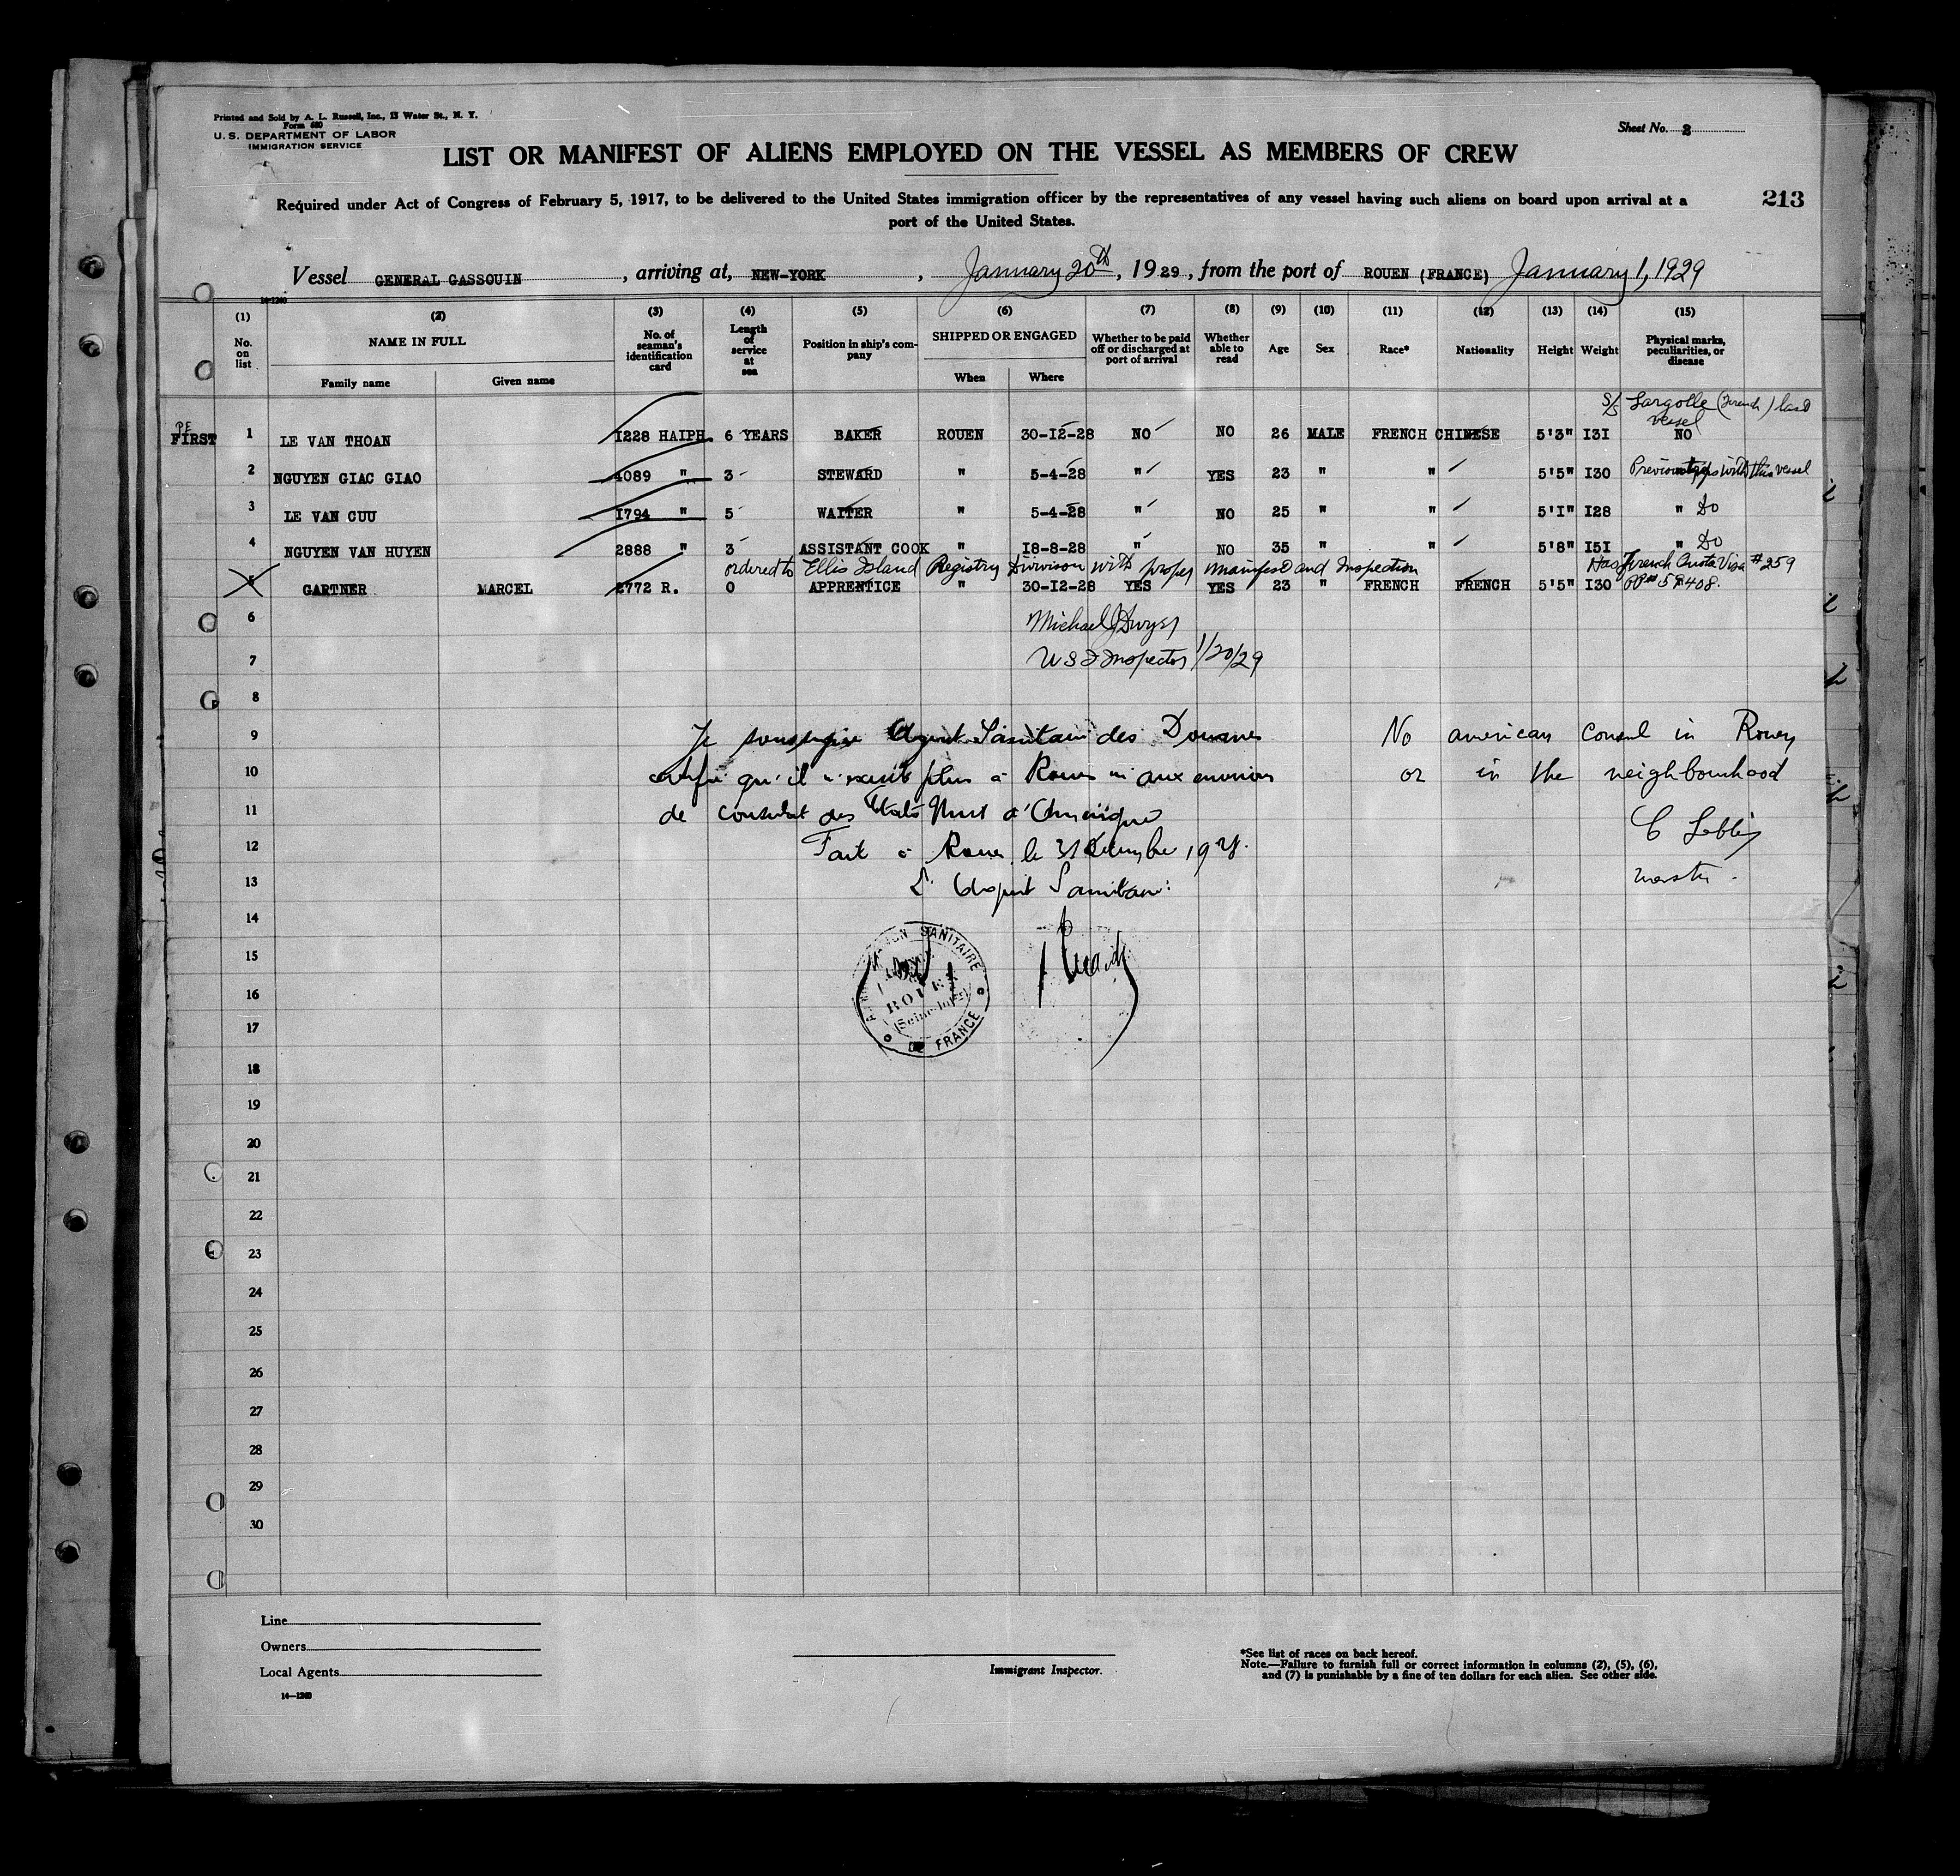 Printed and Sold by A. L. Russell, Inc., 13 Water St., N. Y.
Form 680
U. S. DEPARTMENT OF LABOR
IMMIGRATION SERVICE
Sheet No. 2
LIST OR MANIFEST OF ALIENS EMPLOYED ON THE VESSEL AS MEMBERS OF CREW
Required under Act of Congress of February 5, 1917, to be delivered to the United States immigration officer by the representatives of any vessel having such aliens on board upon arrival at a
port of the United States.
213
Vessel GENERAL GASSOUIN, arriving at, NEW-YORK, January 20th, 1929, from the port of ROUEN (FRANCE) January 1, 1929
14-1240
(1) No. on list
(2) NAME IN FULL Family name Given name
(3) No. of seaman's identification card
(4) Length of service at sea
(5) Position in ship's company
(6) SHIPPED OR ENGAGED When Where
(7) Whether to be paid off or discharged at port of arrival
(8) Whether able to read
(9) Age
(10) Sex
(11) Race*
(12) Nationality
(13) Height
(14) Weight
(15) Physical marks, peculiarities, or disease
S/S Largolle (French) last vessel
FIRST 1 LE VAN THOAN 1228 HAIPH. 6 YEARS BAKER ROUEN 30-12-28 NO NO 26 MALE FRENCH CHINESE 5'3" I3I NO
2 NGUYEN GIAC GIAO 4089 " 3 STEWARD " 5-4-28 " YES 23 " " 5'5" I30 Previous trips with this vessel
3 LE VAN CUU I794 " 5 WAITER " 5-4-28 " NO 25 " " 5'I" I28 " Do
4 NGUYEN VAN HUYEN 2888 " 3 ASSISTANT COOK " I8-8-28 " NO 35 " " 5'8" I5I " Do
ordered to Ellis Island Registry Division with proper manifest and Inspection Has French Quota Visa #259
5 GARTNER MARCEL 2772 R. 0 APPRENTICE " 30-12-28 YES YES 23 " FRENCH FRENCH 5'5" I30
6 Michael J Dwyer
7 U S I Inspector 1/20/29
8
9 Je soussigné Agent Sanitaire des Douanes No american consul in Rouen
10 certifie qu'il n'existe plus à Rouen ni aux environs or in the neighbourhood
11 de consulat des Etats Unis d'Amérique
12 Fait à Rouen le 31 Décembre 1928.
13 L'Agent Sanitaire: master.
14
15
16
17
SANITAIRE
ROUEN
DE FRANCE
18
19
20
21
22
23
24
25
26
27
28
29
30
Line
Owners
Local Agents
14—1240
Immigrant Inspector.
*See list of races on back hereof.
Note.—Failure to furnish full or correct information in columns (2), (5), (6),
and (7) is punishable by a fine of ten dollars for each alien. See other side.